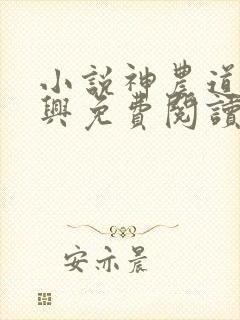 小説神農道
興免費閱讀
安亦晨